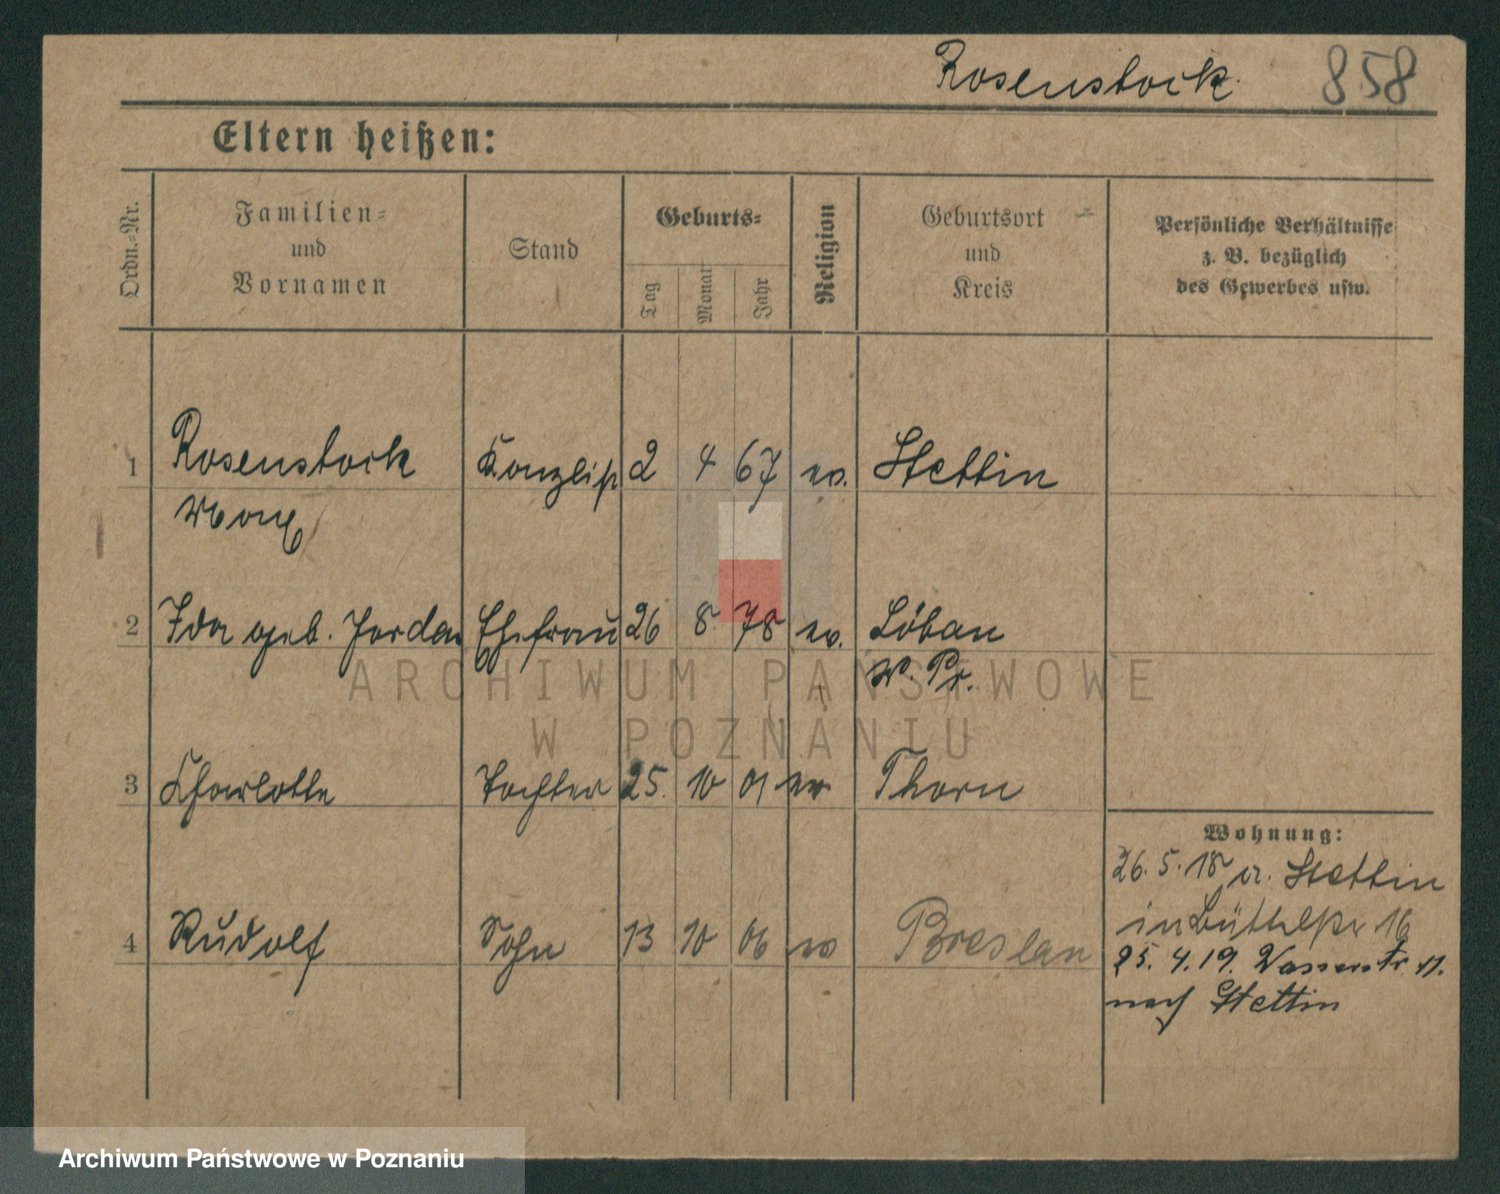 Rosenstock. 858
Eltern heißen:
Ordn.-Nr.
Familien-
und
Vornamen
Stand
Geburts-
Tag
Monat
Jahr
Religion
Geburtsort
und
Kreis
Persönliche Verhältnisse
z. B. bezüglich
des Gewerbes usw.
1 Rosenstock Kanzlist 2 4 67 ev. Stettin
Max
2 Ida geb. Jordan Ehefrau 26 8 78 ev. Löbau
W. Pr.
3 Charlotte Tochter 25. 10 01 ev Thorn
Wohnung:
26. 5. 18 a. Stettin
4 Rudolf Sohn 13 10 06 ev Breslau
16
25. 4. 19. Wasserstr 11.
nach Stettin
ARCHIWUM PAŃSTWOWE
W POZNANIU
Archiwum Państwowe w Poznaniu